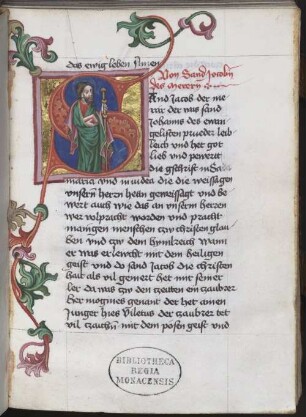 das ewig leben Amen
Von Sand Jacoben
des merern
And Jacob der me
rar der was sand
Johanns des ewan
gelisten prueder leib
leich und het got
lieb und pewert
die geschrift in
maria und in iudea die die weissagen
unsern herrn heten geweissagt und be
wert auch wie das an unserm herrn
wer volpracht worden und pracht
manigen menschen czw christen glau
ben und czw dem hymlreich wann
er was erleucht mit dem heiligen
geist und do sand Jacob die christen
hait als vil gemert het mit seiner
ler da was czw den czeiten ain czaubrer
der mogines genant der het ainen
Junger hies Viletus der czaubrer tet
vil mit dem posen geist und
BIBLIOTHECA
REGIA
MONACENSIS